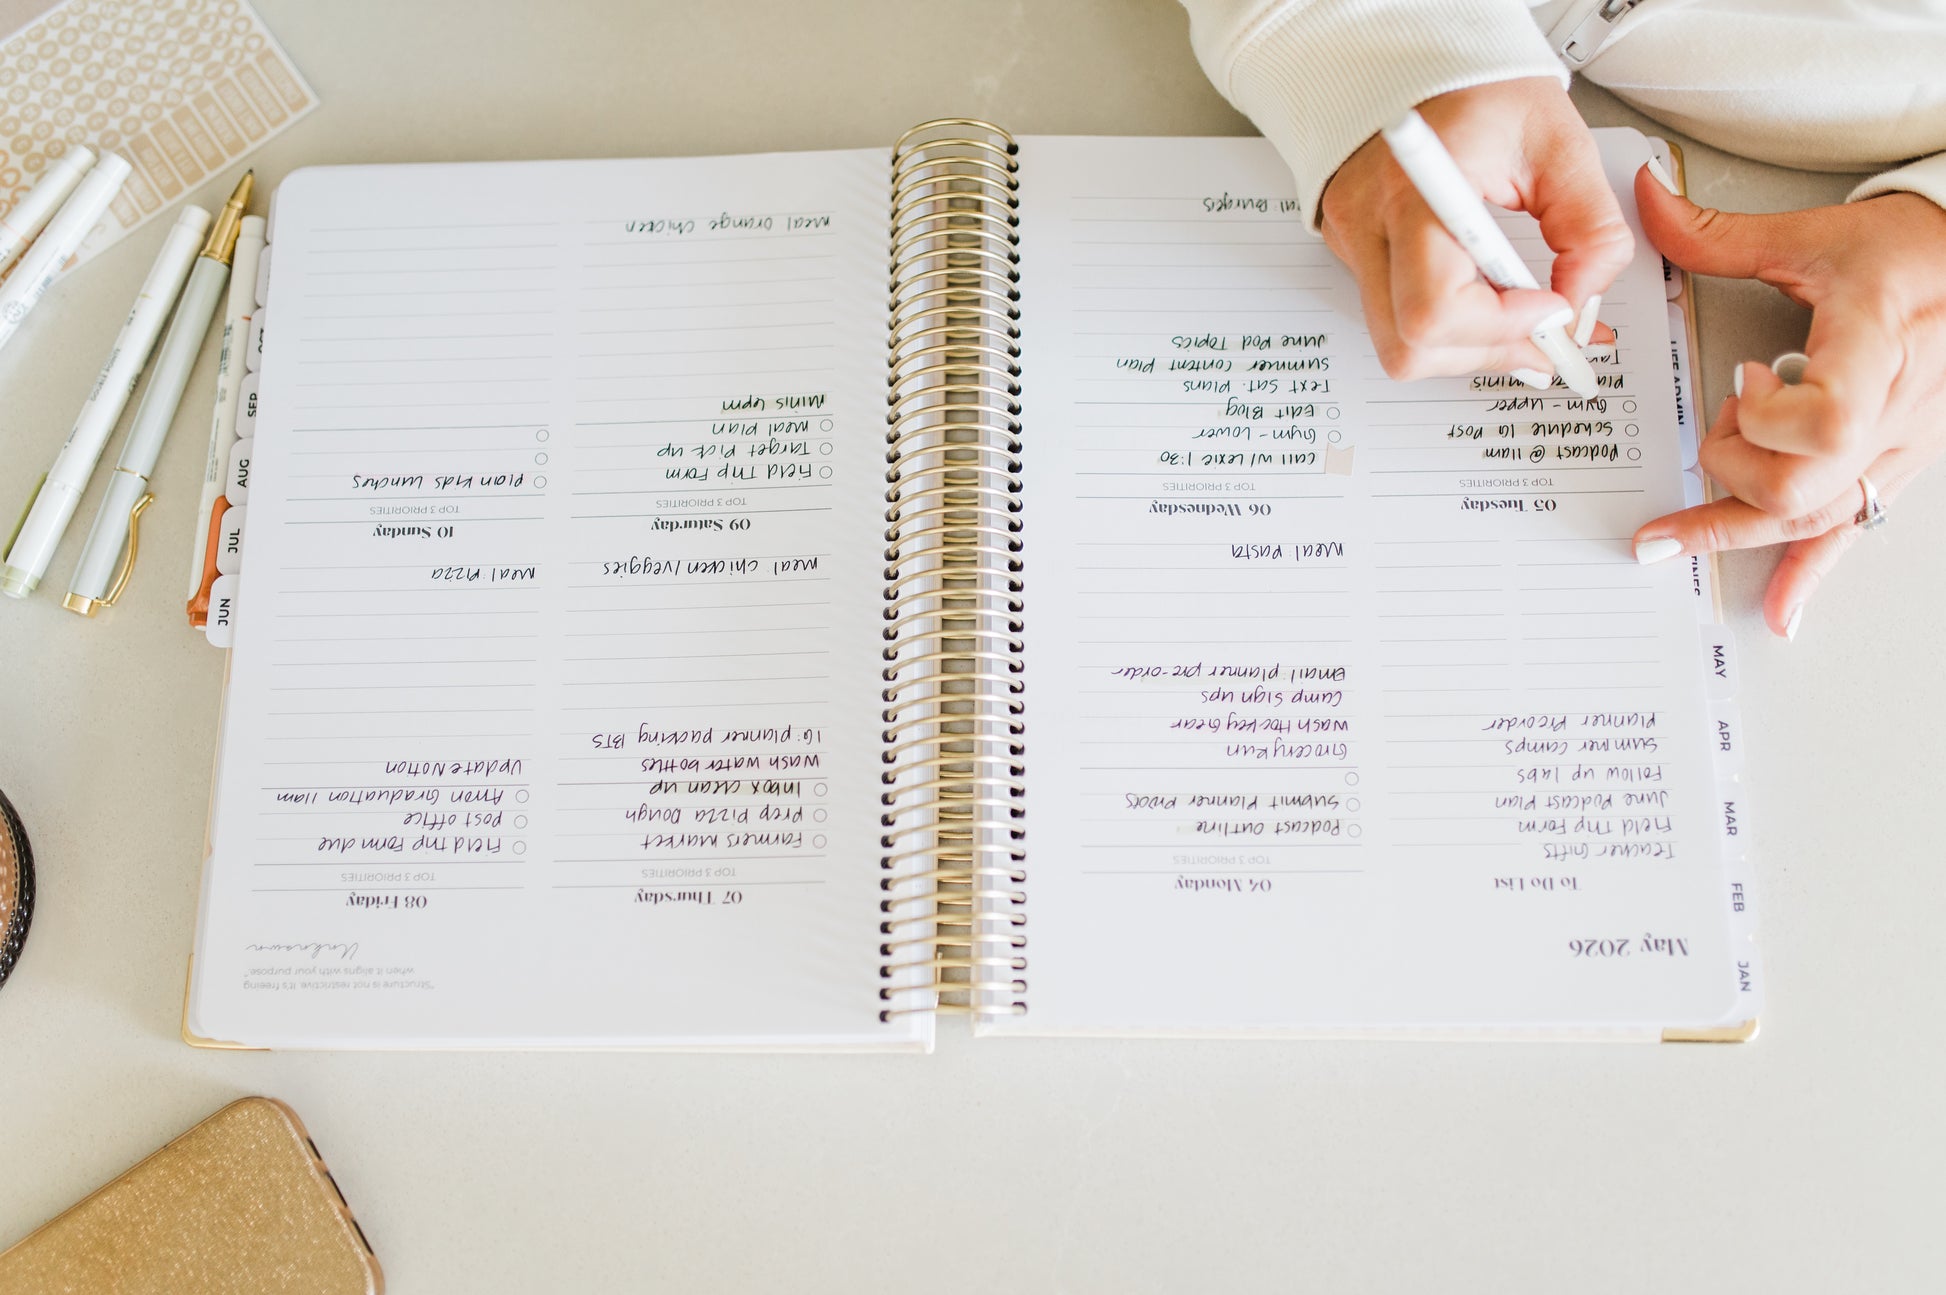 May 2026
To Do List
Teacher Gifts
Field Trip Form
June Podcast Plan
Follow up labs
Summer camps
Planner Preorder
04 Monday
TOP 3 PRIORITIES
Podcast Outline
Submit Planner proofs
Grocery Run
Wash Hockey Gear
Camp sign ups
Email: planner pre-order
Meal: Pasta
05 Tuesday
TOP 3 PRIORITIES
Podcast @ 11am
Schedule IG Post
Gym - Upper
minis
06 Wednesday
TOP 3 PRIORITIES
Call w/ Lexie 1:30
Gym - Lower
Edit Blog
Text Sat. plans
Summer content plan
June Pod Topics
Burgers
"Structure is not restrictive. It's freeing
when it aligns with your purpose."
Unknown
07 Thursday
TOP 3 PRIORITIES
Farmers Market
Prep Pizza Dough
Inbox clean up
Wash water bottles
IG: planner packing BTS
Meal: chicken/veggies
08 Friday
TOP 3 PRIORITIES
Field Trip Form due
Post office
Graduation 11am
Update Notion
Meal: Pizza
09 Saturday
TOP 3 PRIORITIES
Field Trip Form
Target Pick up
Meal plan
Minis 6pm
Meal Orange Chicken
10 Sunday
TOP 3 PRIORITIES
Plan Kids Lunches
JAN
FEB
MAR
APR
MAY
JUN
JUL
AUG
SEP
OCT
LIFE ADMIN